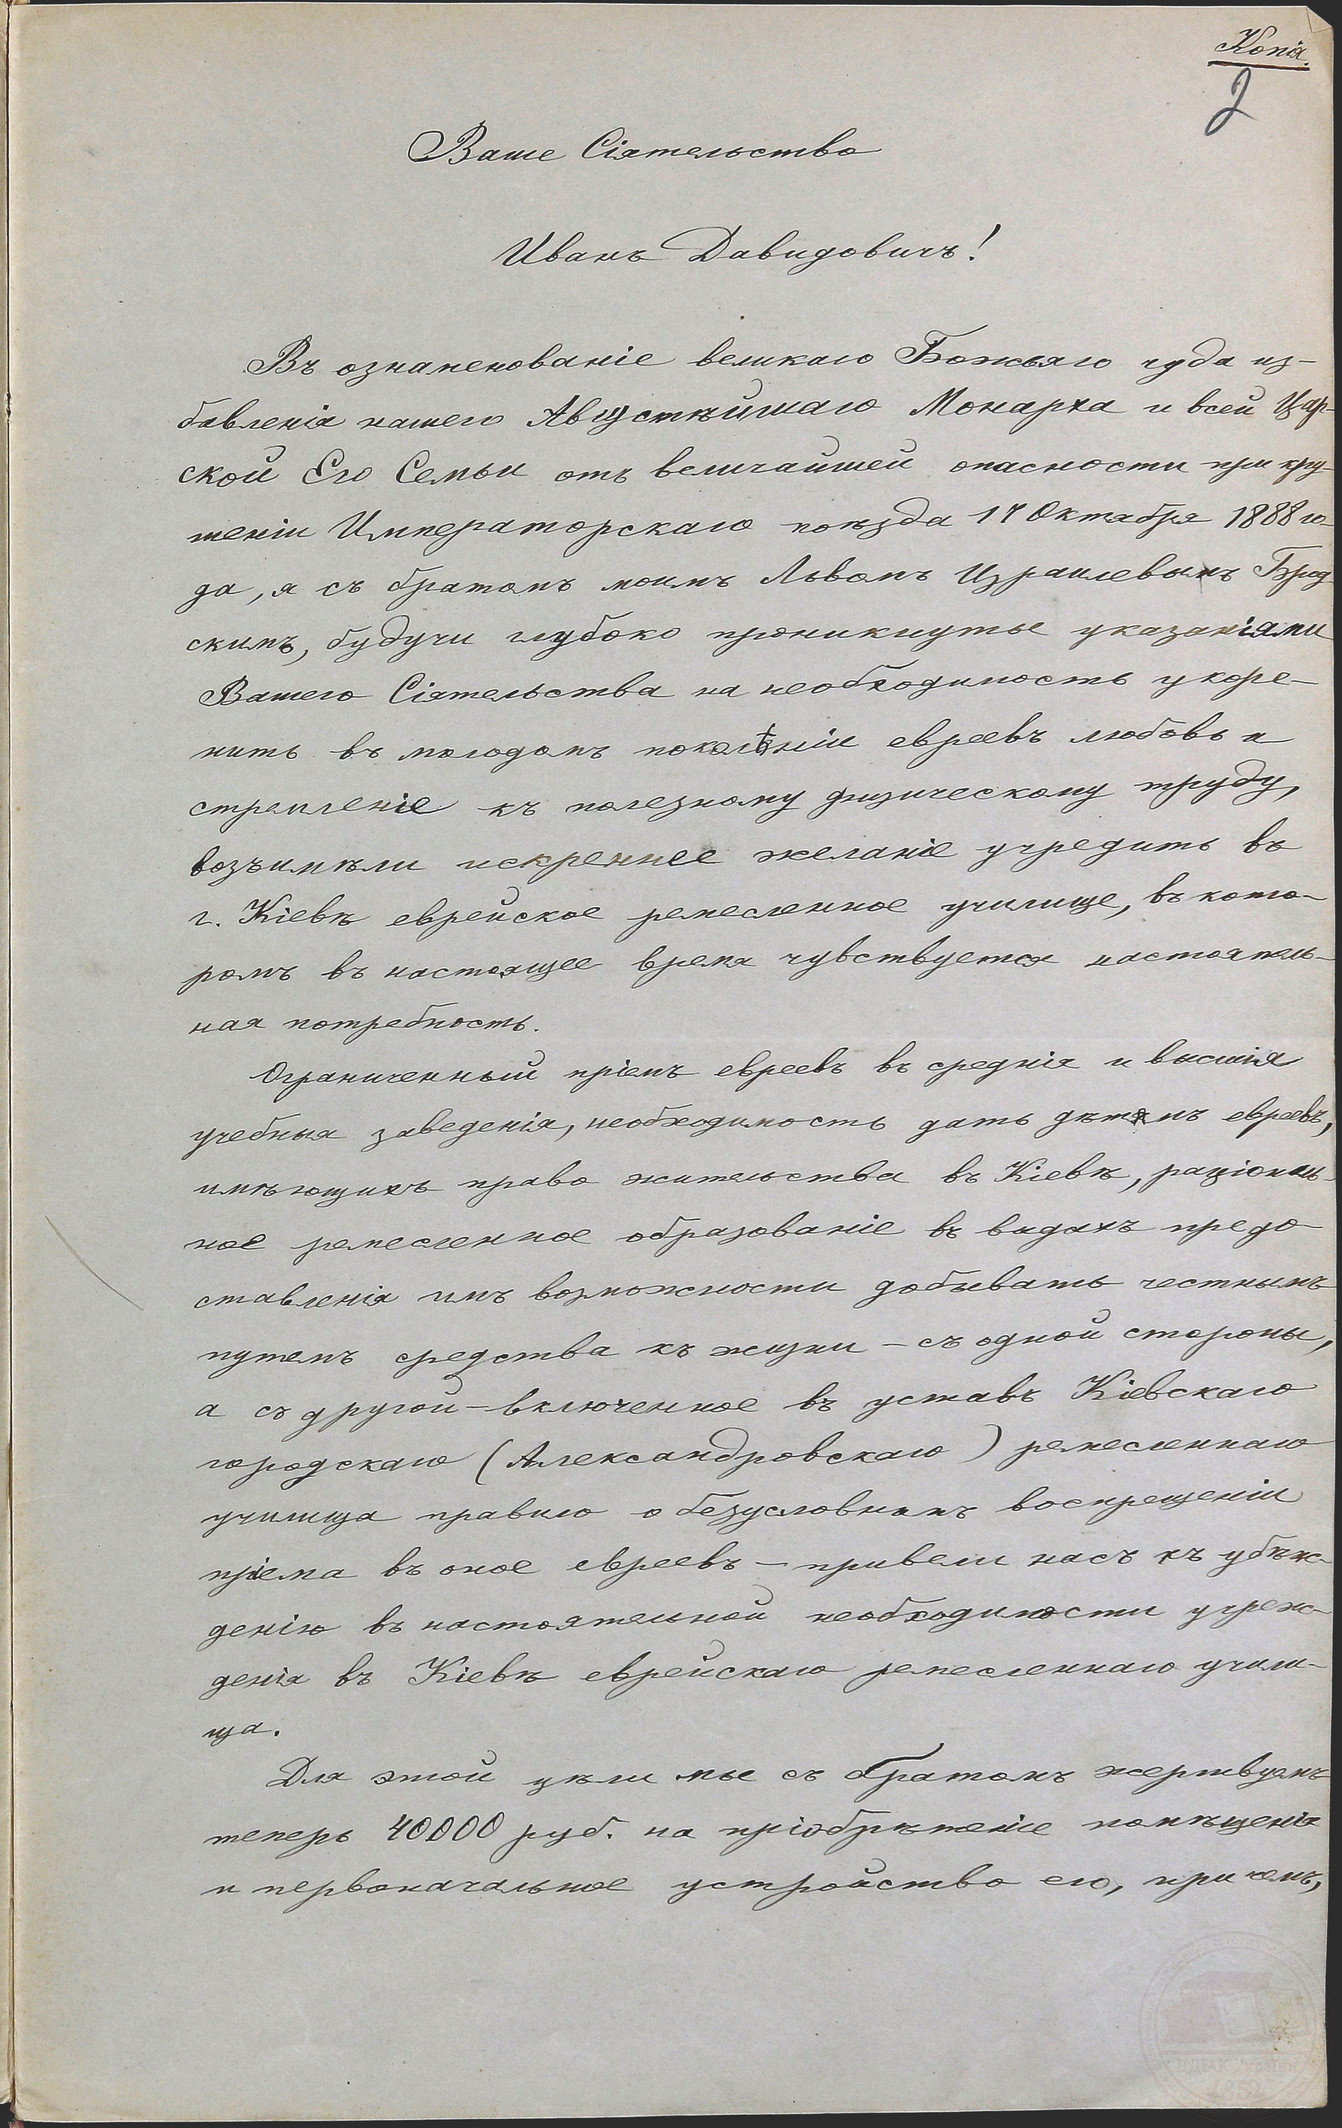 Копія.
2
Ваше Сіятельство
Иванъ Давидовичъ!
Въ ознаменованіе великаго Божьяго чуда из-
бавленія нашего Августѣйшаго Монарха и всей Цар-
ской Его Семьи отъ величайшей опасности при кру-
шеніи Императорскаго поѣзда 17 Октября 1888 го-
да, я съ братомъ моимъ Львомъ Израилевымъ Брод
скимъ, будучи глубоко проникнуты указаніями
Вашего Сіятельства на необходимость укоре-
нить въ молодомъ поколѣніи евреевъ любовь и
стремленіе къ полезному физическому труду,
возъимѣли искреннее желаніе учредить въ
г. Кіевѣ еврейское ремесленное училище, въ кото-
ромъ въ настоящее время чувствуется настоятель-
ная потребность.
Ограниченный пріемъ евреевъ въ среднія и высшія
учебныя заведенія, необходимость дать дѣтямъ евреевъ,
имѣющихъ право жительства въ Кіевѣ, раціональ-
ное ремесленное образованіе въ видахъ предо-
ставленія имъ возможности добывать честнымъ
путемъ средства къ жизни - съ одной стороны,
а съ другой - включенное въ уставъ Кіевскаго
городскаго (Александровскаго) ремесленнаго
училища правило о безусловномъ воспрещеніи
пріема въ оное евреевъ - привели насъ къ убѣж-
денію въ настоятельной необходимости учреж-
денія въ Кіевѣ еврейскаго ремесленнаго учили-
ща.
Для этой цѣли мы съ братомъ жертвуемъ
теперь 40000 руб. на пріобрѣтеніе помѣщенія
и первоначальное устройство его, при чемъ,